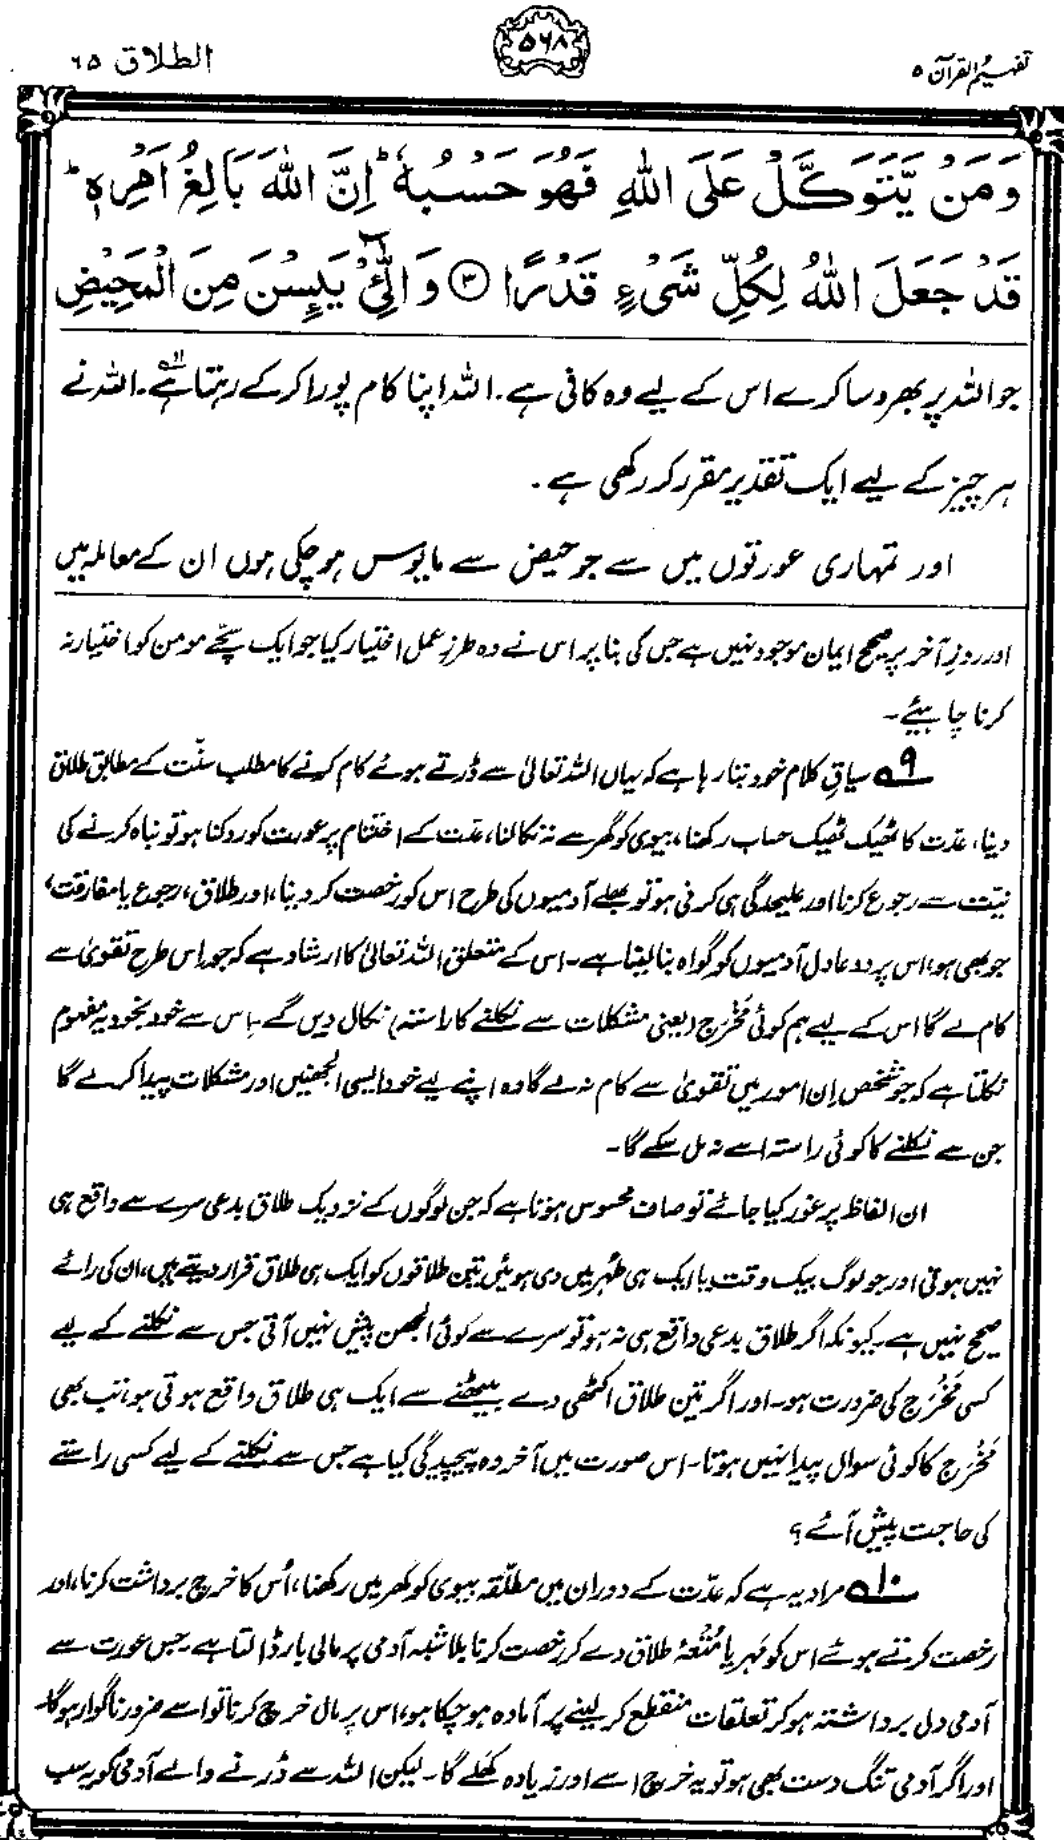 تفہیم القرآن ۵
۵۶۸
الطلاق ۶۵
وَمَنْ يَّتَوَكَّلْ عَلَى اللّٰهِ فَهُوَ حَسْبُهٗ ؕ اِنَّ اللّٰهَ بَالِغُ اَمْرِهٖ ؕ
قَدْ جَعَلَ اللّٰهُ لِكُلِّ شَيْءٍ قَدْرًا ﴿۳﴾ وَالِّٰٓـئْ يَئِسْنَ مِنَ الْمَحِيْضِ
جو اللہ پر بھروسا کرے اس کے لیے وہ کافی ہے۔ اللہ اپنا کام پورا کر کے رہتا ہے۔ اللہ نے
ہر چیز کے لیے ایک تقدیر مقرر کر رکھی ہے۔
اور تمہاری عورتوں میں سے جو حیض سے مایوس ہو چکی ہوں ان کے معاملہ میں
اور روزِ آخر پر صحیح ایمان موجود نہیں ہے جس کی بنا پر اس نے وہ طرزِ عمل اختیار کیا جو ایک سچّے مومن کو اختیار نہ
کرنا چاہیئے۔
۹؎ سیاقِ کلام خود بتا رہا ہے کہ یہاں اللہ تعالیٰ سے ڈرتے ہوئے کام کرنے کا مطلب سنّت کے مطابق طلاق
دینا، عدّت کا ٹھیک ٹھیک حساب رکھنا، بیوی کو گھر سے نہ نکالنا، عدّت کے اختتام پر عورت کو روکنا ہو تو نباہ کرنے کی
نیّت سے رجوع کرنا اور علیحدگی ہی کرنی ہو تو بھلے آدمیوں کی طرح اس کو رخصت کر دینا، اور طلاق، رجوع یا مفارقت،
جو بھی ہو، اس پر دو عادل آدمیوں کو گواہ بنا لینا ہے۔ اس کے متعلق اللہ تعالیٰ کا ارشاد ہے کہ جو اس طرح تقویٰ سے
کام لے گا اس کے لیے ہم کوئی مَخْرَج (یعنی مشکلات سے نکلنے کا راستہ) نکال دیں گے۔ اس سے خود بخود یہ مفہوم
نکلتا ہے کہ جو شخص اِن امور میں تقویٰ سے کام نہ لے گا وہ اپنے لیے خود ایسی الجھنیں اور مشکلات پیدا کر لے گا
جن سے نکلنے کا کوئی راستہ اسے نہ مل سکے گا۔
ان الفاظ پر غور کیا جائے تو صاف محسوس ہوتا ہے کہ جن لوگوں کے نزدیک طلاق بدعی سرے سے واقع ہی
نہیں ہوتی اور جو لوگ بیک وقت یا ایک ہی طُہر میں دی ہوئیں تین طلاقوں کو ایک ہی طلاق قرار دیتے ہیں، ان کی رائے
صحیح نہیں ہے۔ کیونکہ اگر طلاق بدعی واقع ہی نہ ہو تو سرے سے کوئی الجھن پیش نہیں آتی جس سے نکلنے کے لیے
کسی مَخْرَج کی ضرورت ہو۔ اور اگر تین طلاق اکٹھی دے بیٹھنے سے ایک ہی طلاق واقع ہوتی ہو تب بھی
مَخْرَج کا کوئی سوال پیدا نہیں ہوتا۔ اس صورت میں آخر وہ پیچیدگی کیا ہے جس سے نکلنے کے لیے کسی راستے
کی حاجت پیش آئے؟
۱۰؎ مراد یہ ہے کہ عدّت کے دوران میں مطلّقہ بیوی کو گھر میں رکھنا، اُس کا خرچ برداشت کرنا، اور
رخصت کرتے ہوئے اس کو مَہر یا مُتْعۂ طلاق دے کر رخصت کرنا بلا شبہ آدمی پر مالی بار ڈالتا ہے۔ جس عورت سے
آدمی دل برداشتہ ہو کر تعلقات منقطع کر لینے پر آمادہ ہو چکا ہو، اس پر مال خرچ کرنا تو اسے ضرور ناگوار ہوگا۔
اور اگر آدمی تنگ دست بھی ہو تو یہ خرچ اسے اور زیادہ کھَلے گا۔ لیکن اللہ سے ڈرنے والے آدمی کو یہ سب